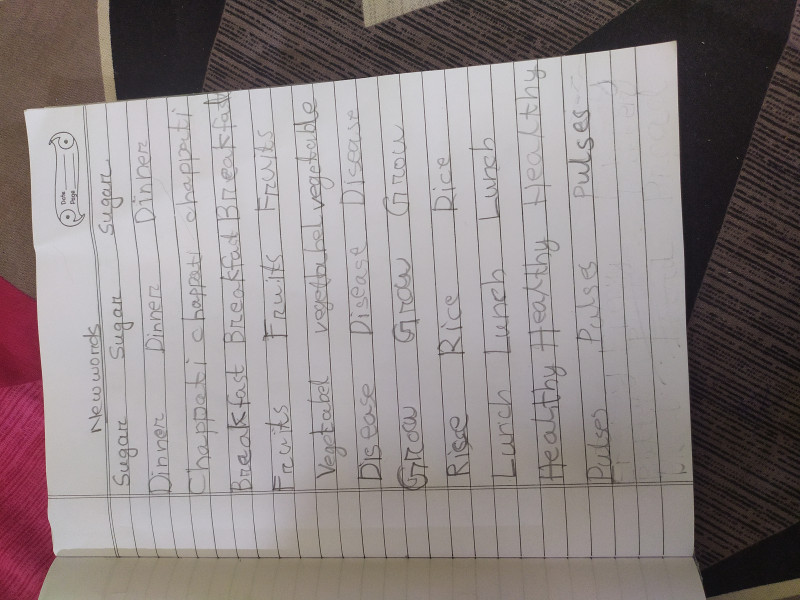 Date
Page
New words
Sugar Sugar Sugar
Dinner Dinner Dinner
Chappati chappati chappati
Breakfast Breakfast Breakfast
Fruits Fruits Fruits
Vegetabel vegetabel vegetable
Disease Disease Disease
Grow Grow Grow
Rice Rice Rice
Lunch Lunch Lunch
Healthy Healthy Healthy
Pulses Pulses Pulses